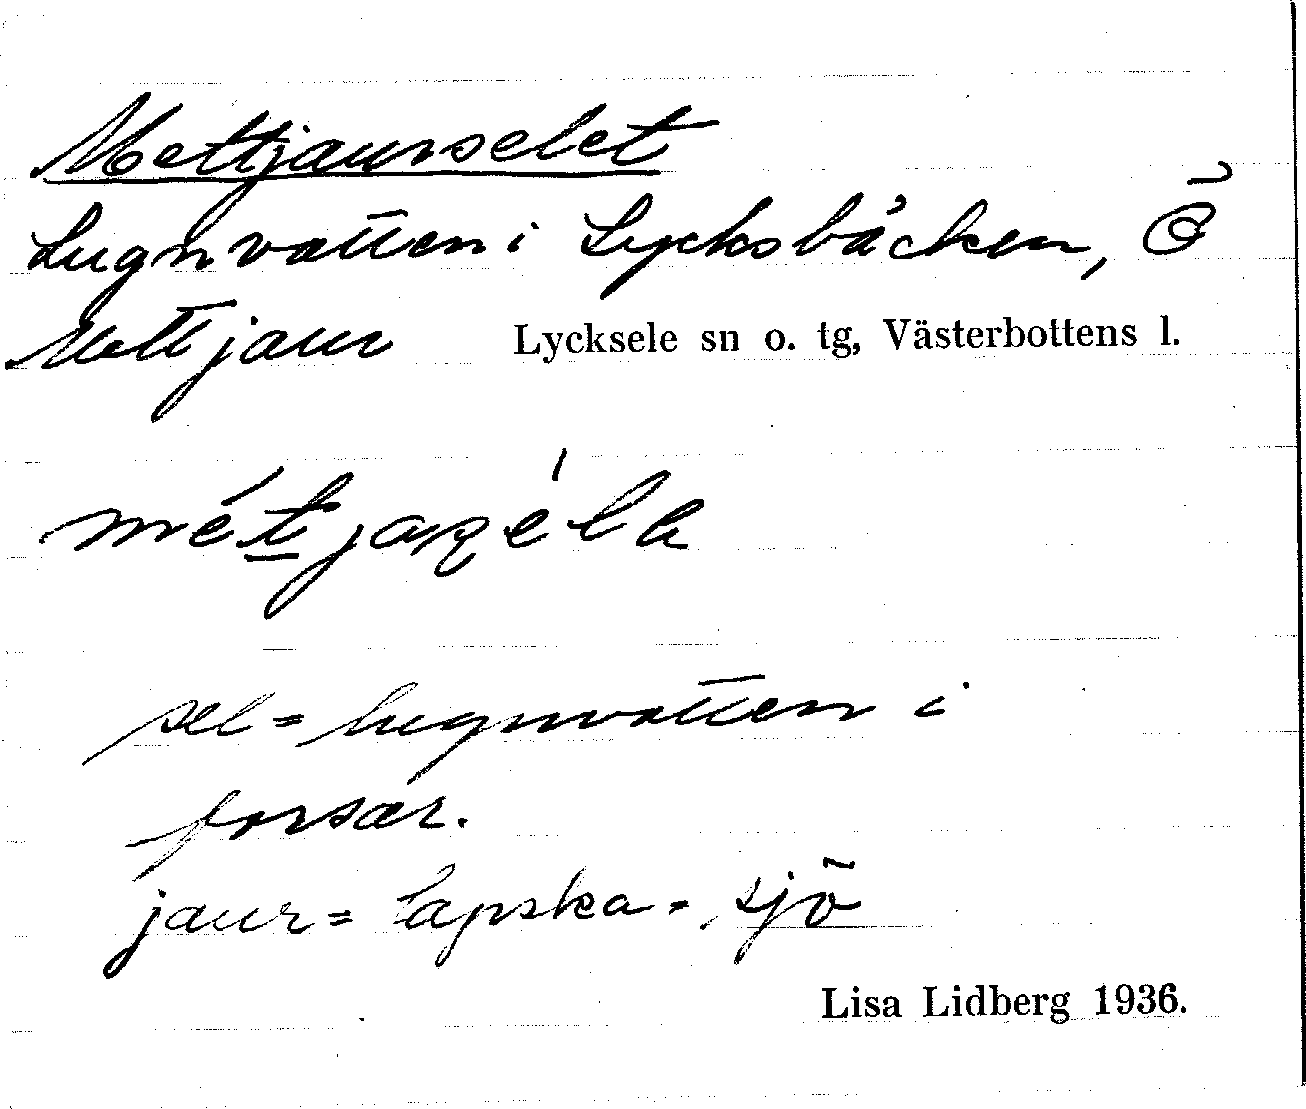 Mettjaurselet
Lugnvatten i Lycksbäcken, Ö
Mettjaur Lycksele sn o. tg, Västerbottens l.
sel = lugnvatten i
forsar.
jaur = lapska = sjö
Lisa Lidberg 1936.